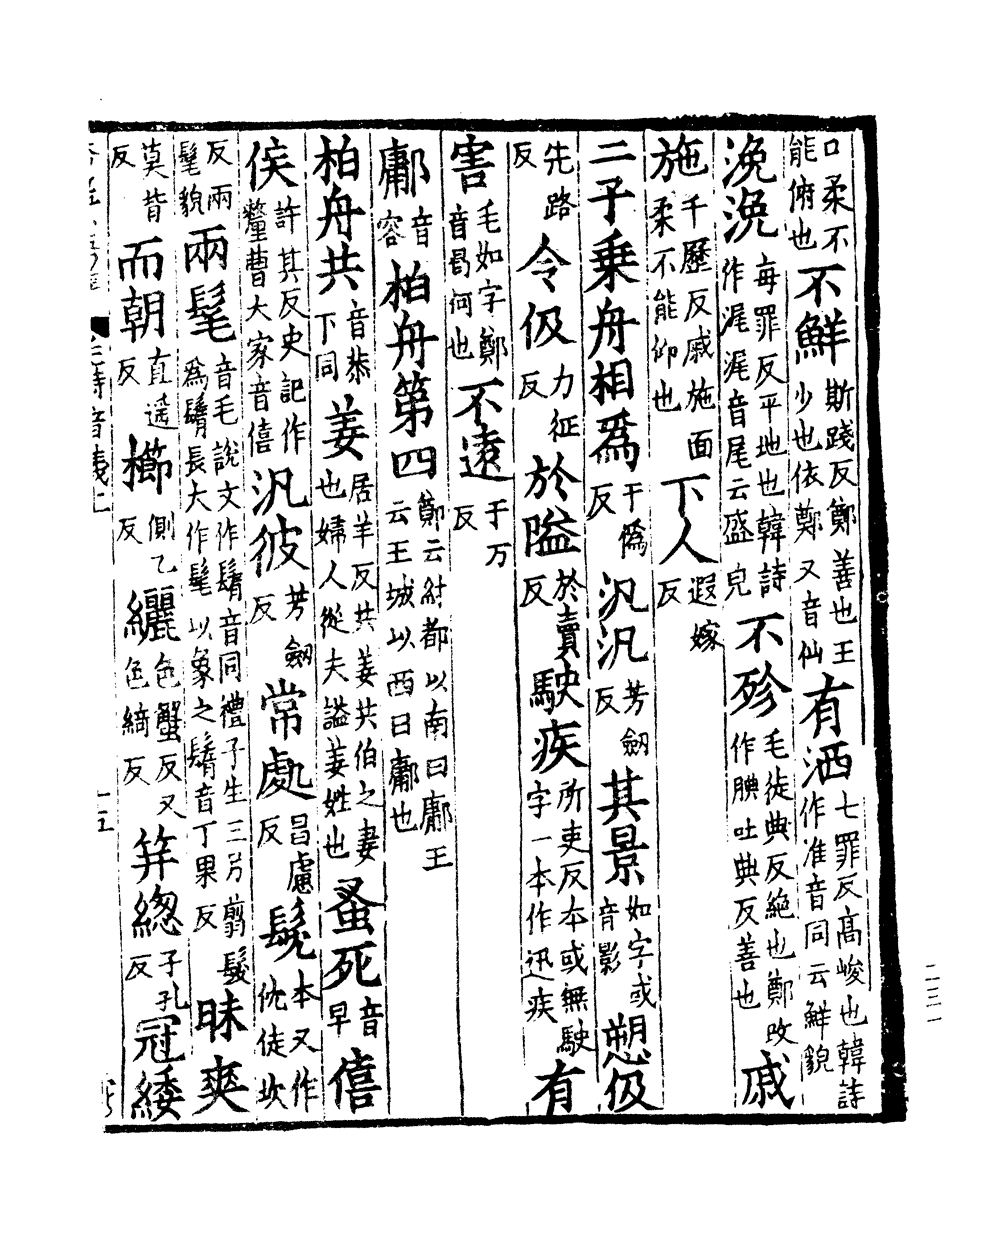 口柔不能俯也不鮮斯踐反鄭善也王少也依鄭又音仙有洒七罪反高峻也韓詩作准音同云鮮貌
浼浼每罪反平地也韓詩作浘浘音尾云盛皃不殄毛徒典反絶也鄭改作腆吐典反善也戚
施千歷反戚施面柔不能仰也下人遐嫁反
二子乗舟相爲于僞反汎汎芳劔反其景如字或音影愬伋
先路反令伋力征反於隘於賣反駛疾所吏反本或無駛字一本作迅疾有
害毛如字鄭音曷何也不遠于万反
鄘音容柏舟第四鄭云紂都以南曰鄘王云王城以西曰鄘也
柏舟共音恭下同姜居羊反共姜共伯之妻也婦人從夫謚姜姓也蚤死音早僖
侯許其反史記作釐曹大家音僖汎彼芳劔反常處昌慮反髧本又作优徒坎
反兩髦貌兩髦音毛說文作䰋音同禮子生三月翦髮爲鬌長大作髦以象之鬌音丁果反昧爽
莫背反而朝直遥反櫛側乙反纚色蟹反又色綺反笄緫子孔反冠緌
十五
二三一